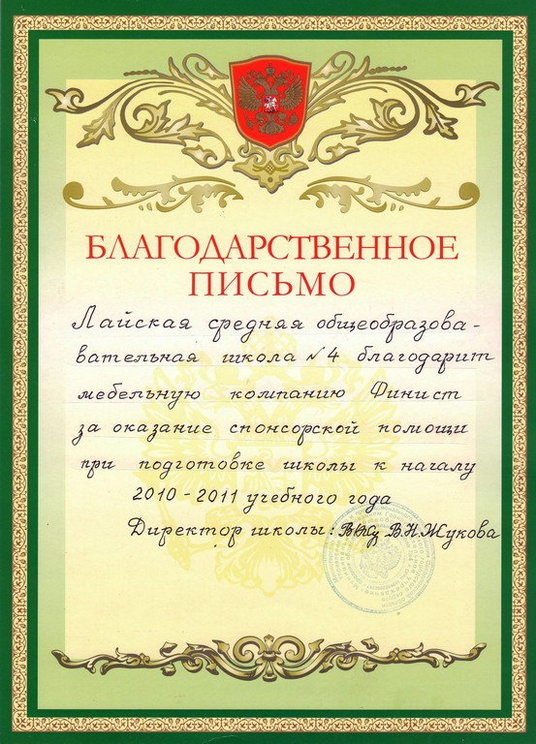 БЛАГОДАРСТВЕННОЕ
ПИСЬМО
Лайская средняя общеобразова-
вательная школа №4 благодарит
мебельную компанию Финист
за оказание спонсорской помощи
при подготовке школы к началу
2010-2011 учебного года
Директор школы: В.Н.Жукова